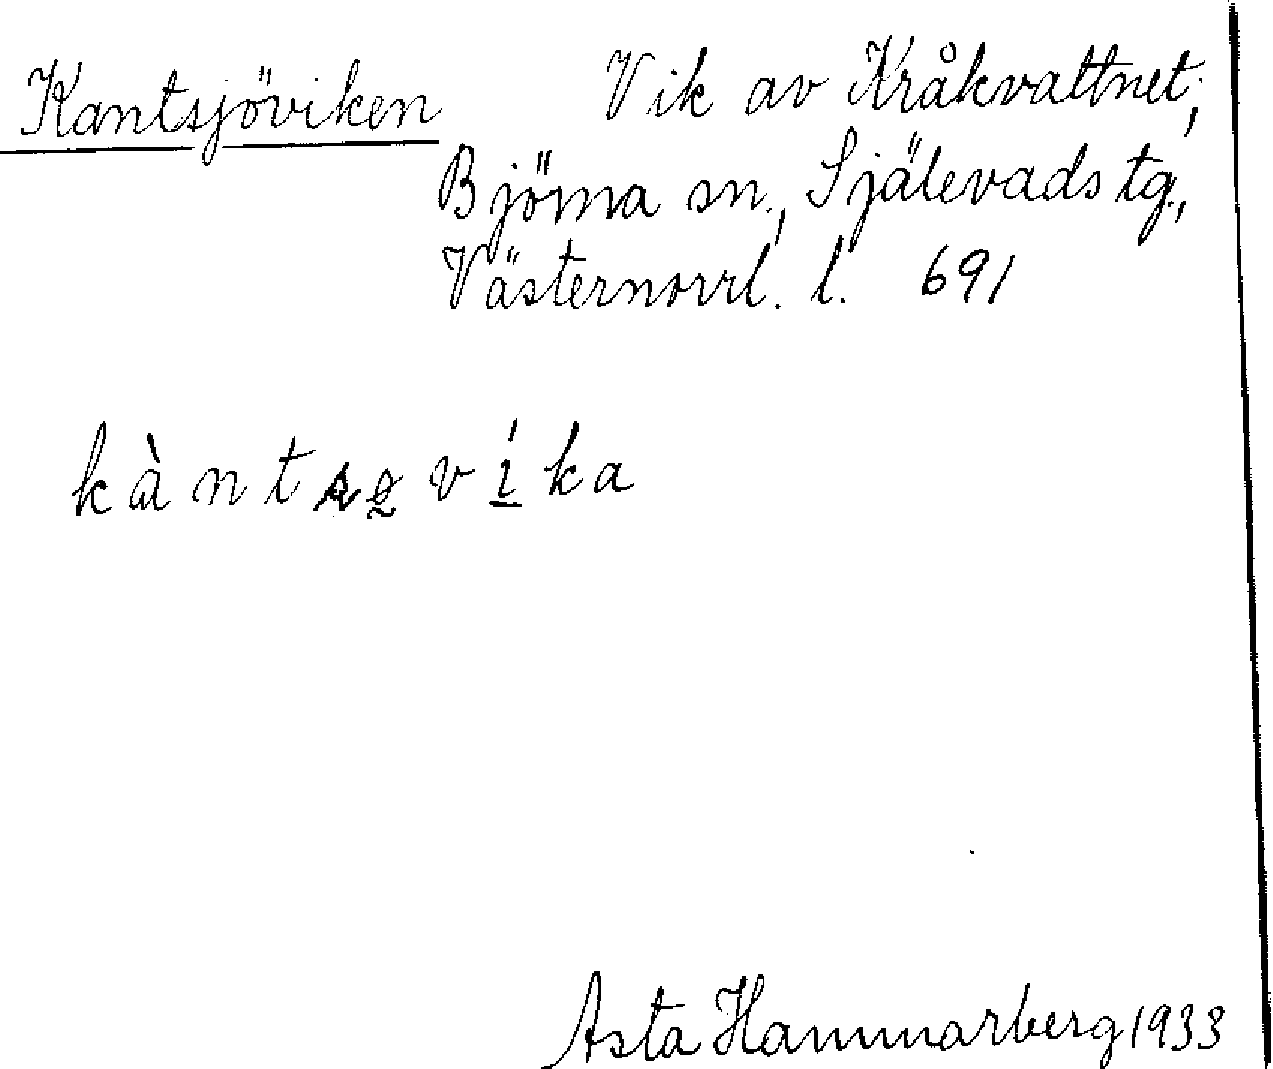 Kantsjöviken Vik av Kråkvattnet,
Björna sn., Själevads tg.,
Västernorrl. l. 691
Asta Hammarberg 1933